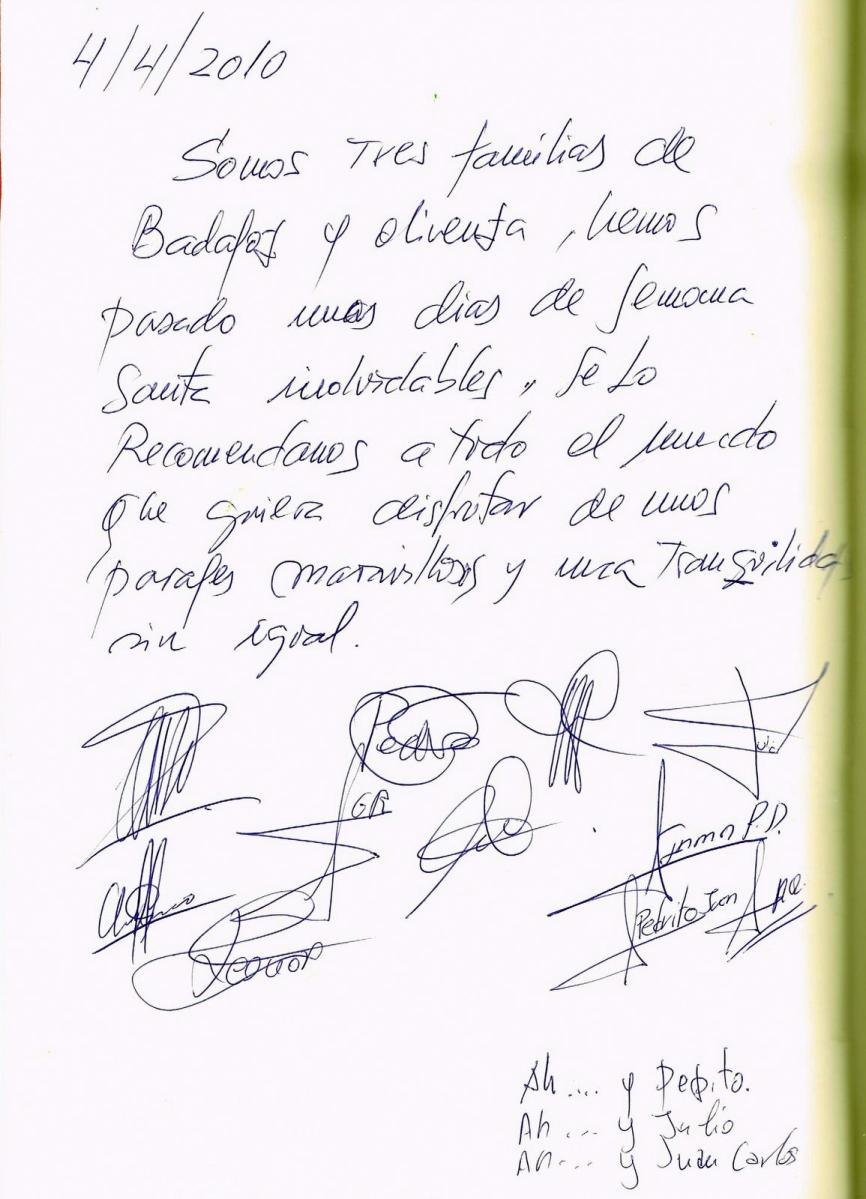 4/4/2010
Somos Tres familias de
Badajoz y olivenza, hemos
pasado unos dias de Semana
Santa inolvidables, se lo
Recomendamos a todo el mundo
que quiera disfrutar de unos
parajes maravillosos y una Tranquilidad
sin igual.
Pedro
GR
Inma P.D.
Pedrito Ivan
Leonor
Ah .... y Pepito.
Ah .... y Julio
Ah .... y Juan Carlos